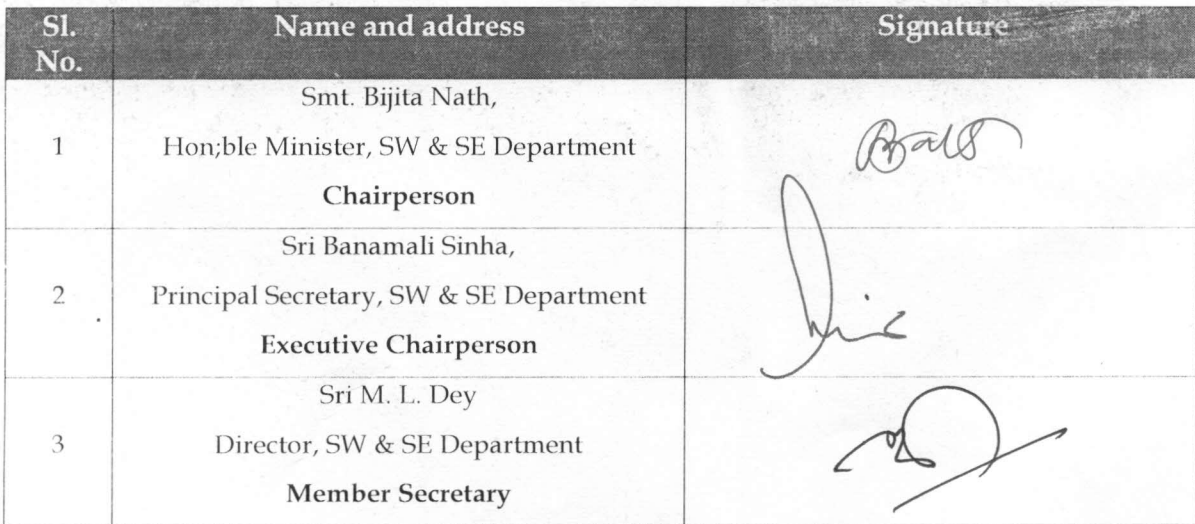 Sl. No.
Name and address
Signature
1
Smt. Bijita Nath,
Hon;ble Minister, SW & SE Department
Chairperson
2
Sri Banamali Sinha,
Principal Secretary, SW & SE Department
Executive Chairperson
3
Sri M. L. Dey
Director, SW & SE Department
Member Secretary